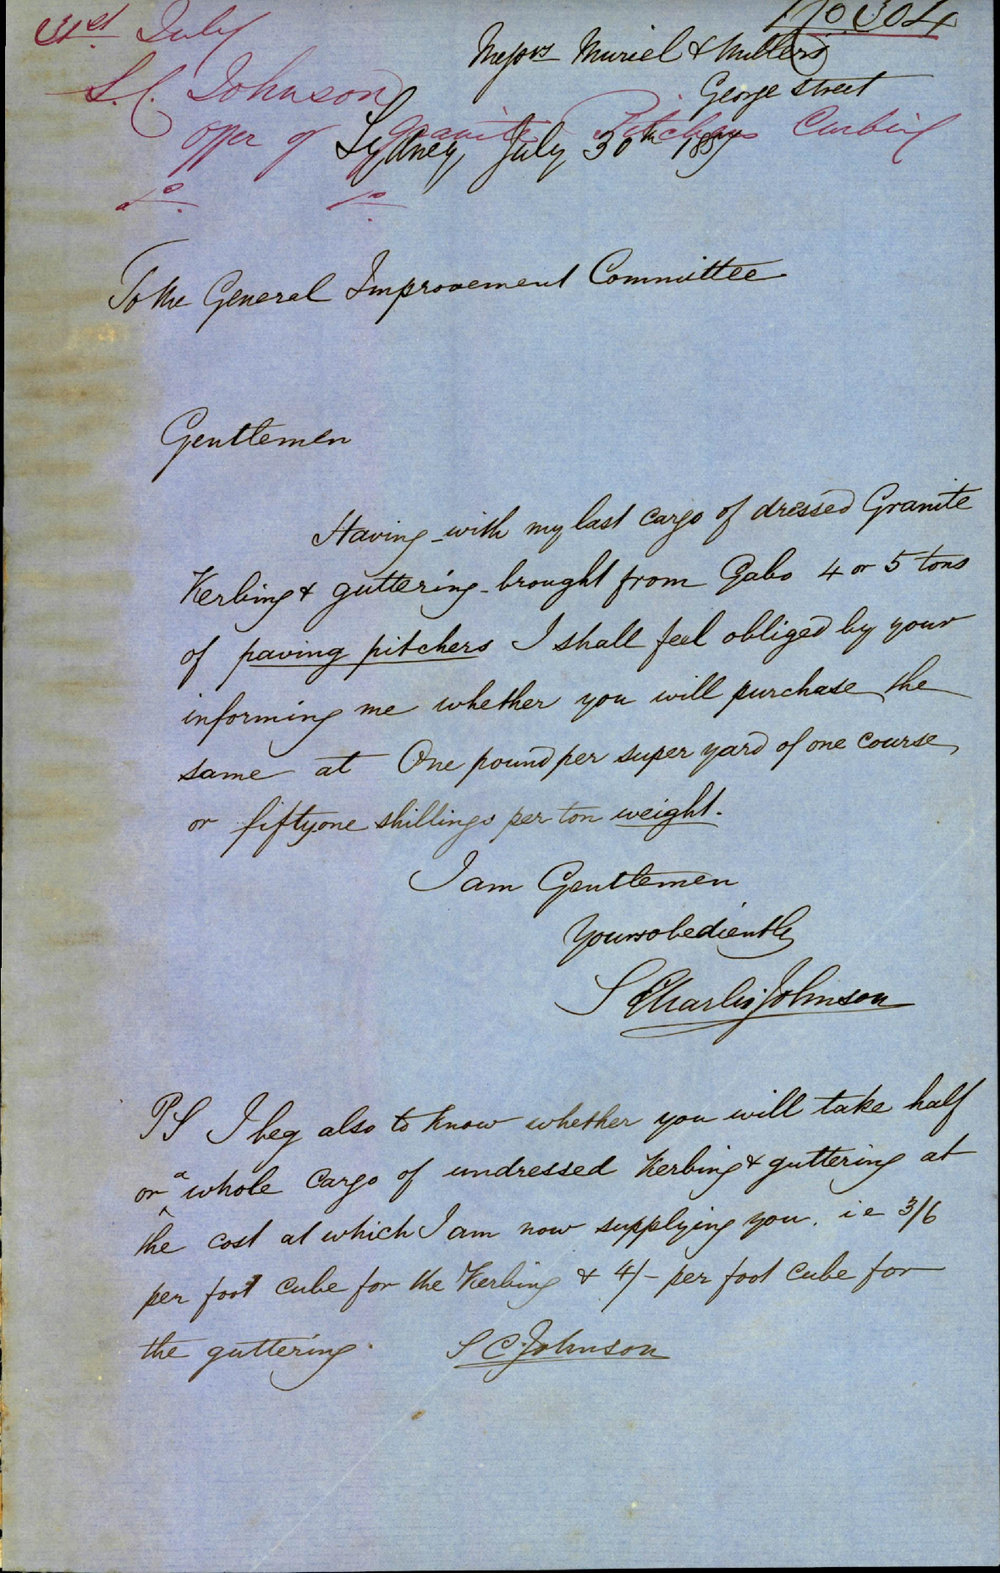 No 304
31st July
Messrs Muriel & Mullers
S. C. Johnson
George Street
Offer of Granite Pitchers Curbing
Sydney July 30th
To the General Improvement Committee
Gentlemen
Having with my last cargo of dressed Granite
Kerbing & guttering brought from Gabo 4 or 5 tons
of paving pitchers I shall feel obliged by your
informing me whether you will purchase the
same at One pound per super yard of one course,
or fiftyone shillings per ton weight.
I am Gentlemen
Yours obediently
S Charles Johnson
PS I beg also to know whether you will take half
or a whole Cargo of undressed Kerbing & guttering at
the cost at which I am now supplying you. i e 3/6
per foot cube for the Kerbing & 4/- per foot cube for
the guttering. S C. Johnson